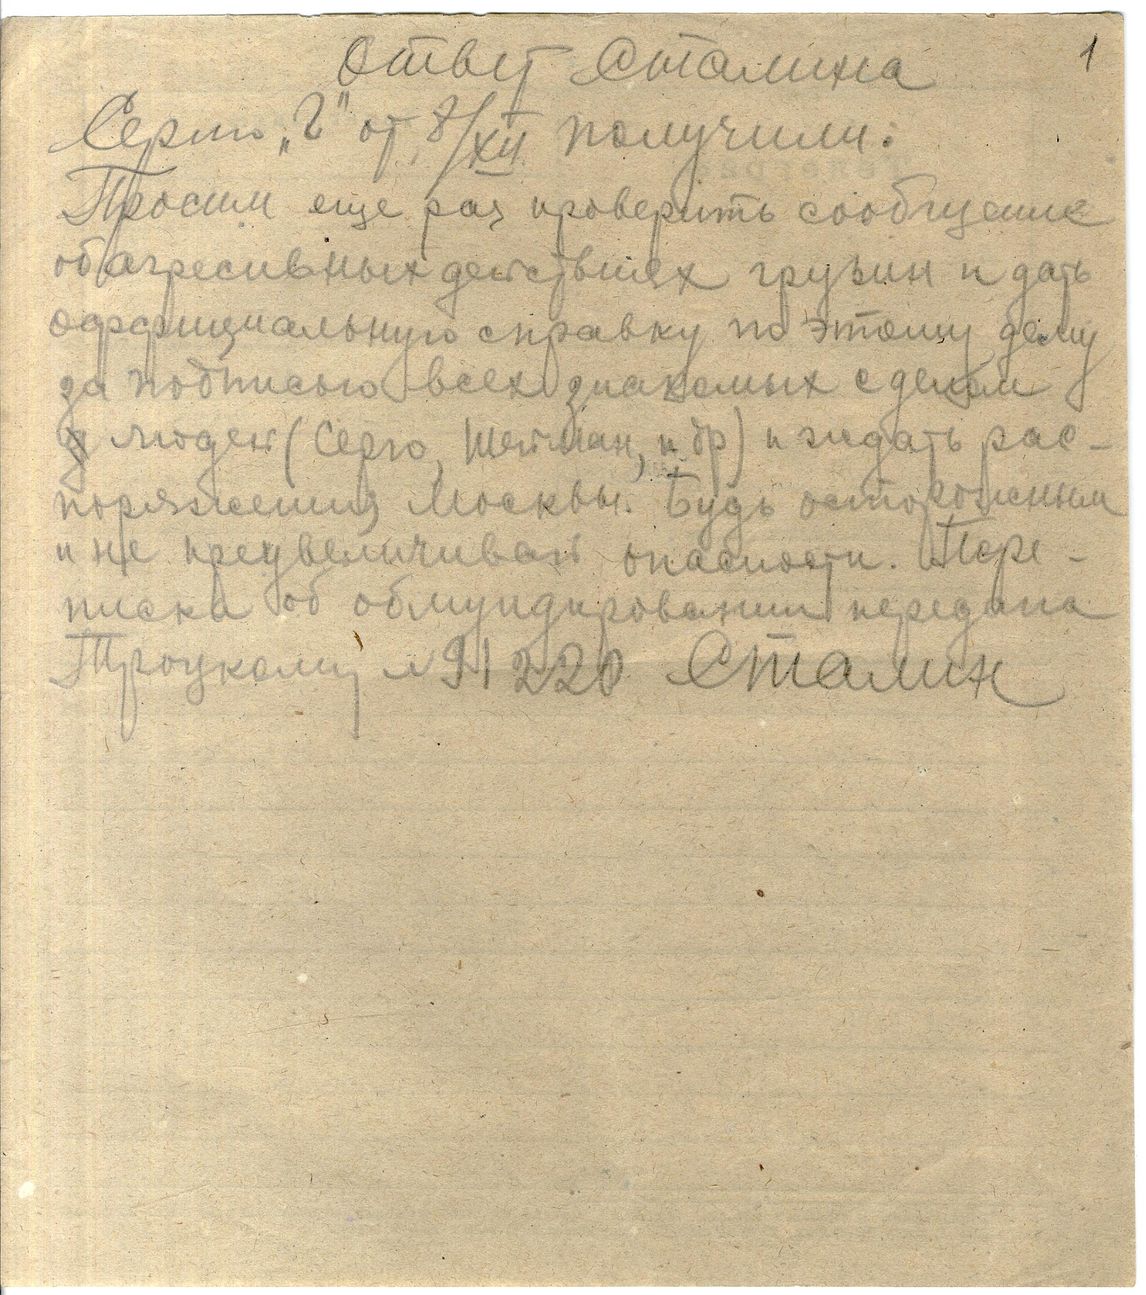 Ответ Сталина 1
Серию „Г" от 8/XII получили:
Просим еще раз проверить сообщение
об агресивных действиях грузин и дать
оффициальную справку по этому делу
за подписью всех знакомых с делом
людей (Серго, Шейман, и др) и ждать рас-
поряжения Москвы. Будь осторожным
и не преувеличивай опасности. Пере-
писка об обмундировании передана
Троцкому №91220 Сталин